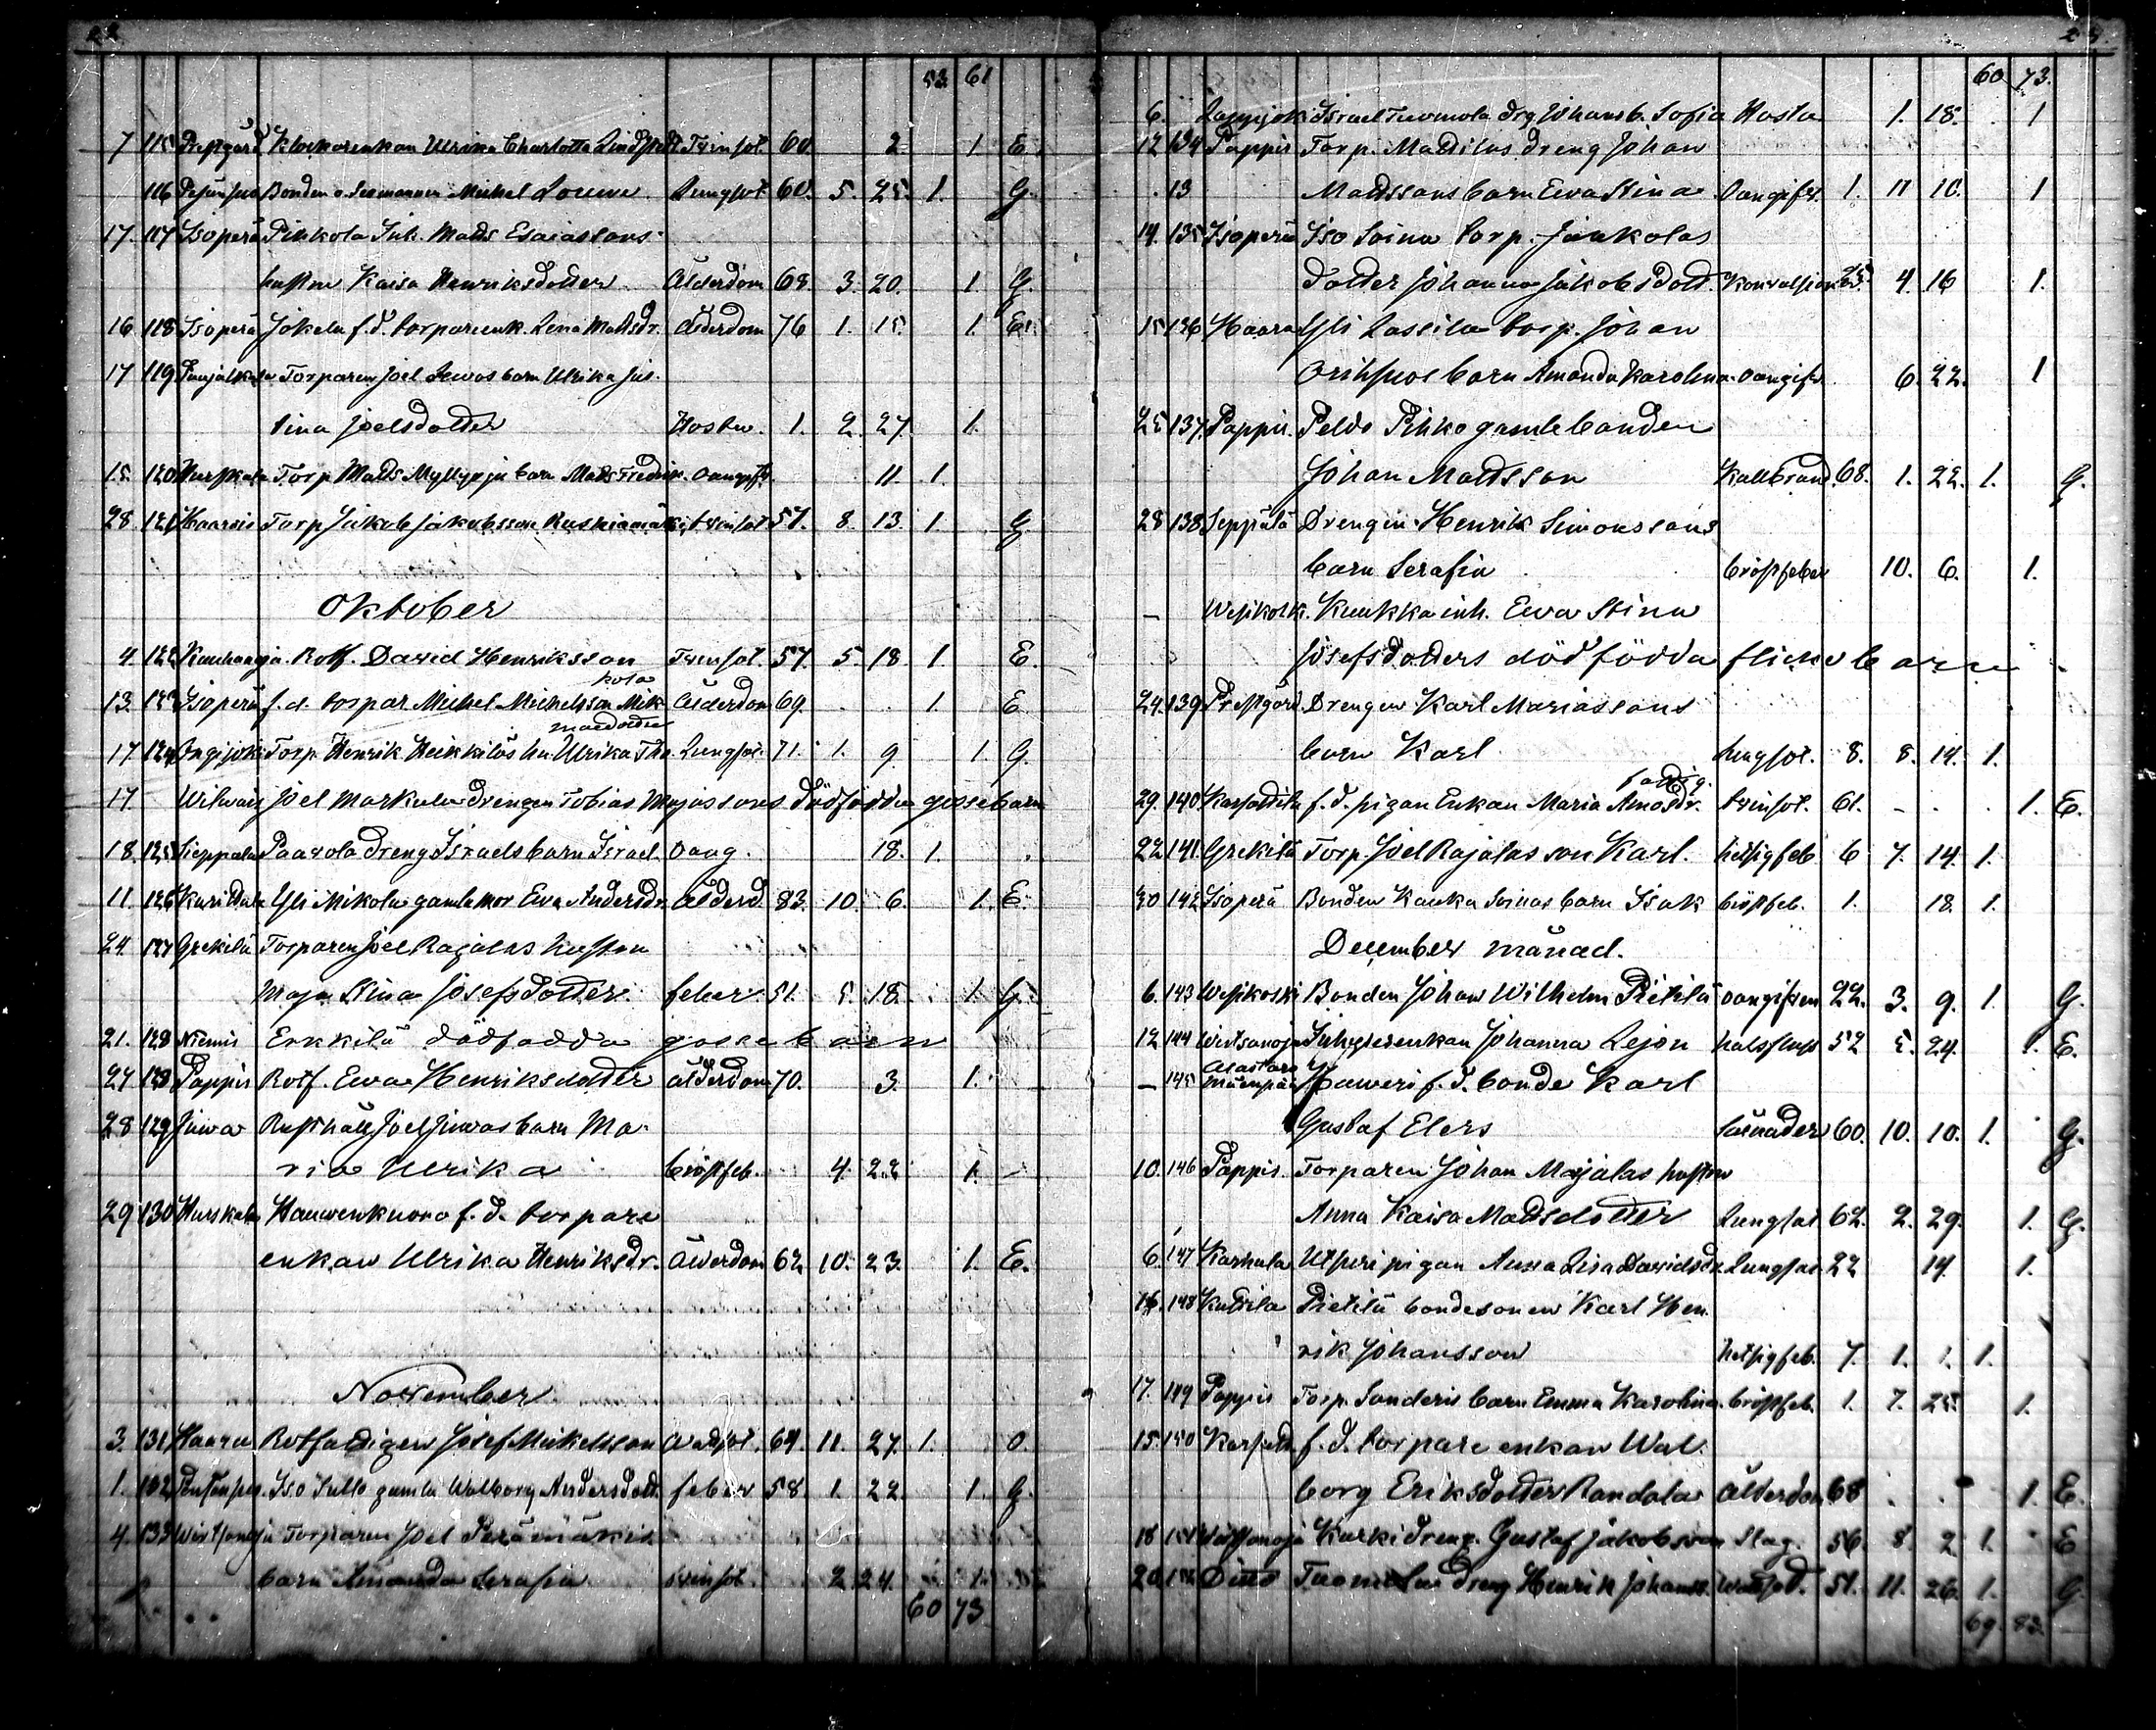 22
53. 61
7 115 Prestgård Klockarenkan Ulrika Charlotta Lindstedt Tvinsot. 60. 2. 1. E.
116 Bonden o Sexmannen Michel Louwe Lungsot. 60. 5. 25. 1. G.
17. 117 Isoperä Pihkola Inh. Matts Esaiassons
hustru Kaisa Henriksdotter Ålderdom 68. 3. 20. 1. G.
16 118 Isoperä Jokela f. d. torpareenk. Lena Mattsdr. Ålderdom 76 1. 15. 1. E.
17 119 Torparen Joel barn Ulrika Jus-
tina Joelsdotter Hosta. 1. 2. 27. 1.
15. 120 Hurskala Torp Matts Myllyoja barn Matts Fredrik. Oangifv. 11. 1.
28. 121 Haarois Torp Jakob Jakobsson Ruskiamäki tvinsot 57. 8. 13. 1. G
Oktober
4. 122 Rotf. David Henriksson Tvinsot. 57. 5. 18 1. E.
kola
13. 123 Isoperä f. d. torpar Michel Michelsson Mik Ålderdom 69. 1. E
17. 124 Ongijoki Torp. Henrik Heikkiläs hu. Ulrika Tho. Lungsot. 71. 1. 9. 1. G.
17. Joel Markula drengen Tobias dödfödda gossebarn
18. 125 Seppälä Paavola dreng Israels barn Israel Oang. 18. 1.
11. 126 Yli Mikola gamla mor Eva Andersdr. Ålderd. 83. 10. 6. 1. E.
24. 127 Grekilä Torparen Joel Rajalas hustru
Maja Stina Josefsdotter feber 51. 5. 18. 1. G.
21. 128 Niemis Erkkilä dödfödda gossebarn
27 128 Pappis Rotf. Ewa Henriksdotter ålderdom 70. 3. 1.
28 129 Juwa Rusthåll Joel Juwas barn Ma-
ria Ulrika bröstfeb. 4. 22 1.
29 130 Hurskala Hauwenkuono f. d. torpare
enkan Ulrika Henriksdr. Ålderdom 62 10. 23. 1. E.
November
3. 131 Haara Rotfattigen Josef Mickelsson 64. 11. 27. 1. O.
1. 132 Iso Tullo gamla Walborg Andersdott. feber 58. 1. 22. 1. G.
4. 133 Torparen Joel Perämäkis
barn Amanda Serafia tvinsot. 2 24. 1.
60 73
60 73.
6. Israel Tuomola drg Johans b. Sofia Hosta 1. 18. 1
12 134 Pappis Torp. Mattilas dreng Johan
13 Mattssons barn Ewa Stina Oangifv. 1. 11 10. 1
14. 135 Isoperä Iso Soinu torp. Jaakolas
dotter Johanna Jakobsdott. Konvulsion 4. 16 1.
15 136 Haara Yli Lassila torp. Johan
barn Amanda Karolina oangifv. 6. 22. 1
25 137 Pappis. Peldo Pihko gamle bonden
Johan Mattsson Kallbrand. 68. 1. 22. 1. G.
28 138 Seppälä Drengen Henrik Simonssons
barn Serafia bröstfeber 10. 6. 1.
— Wesikosk. Kuukka inh. Ewa Stina
Josefsdotters dödfödda flickebarn
24. 139 Prestgård. Drengen Karl Mariassons
barn Karl lungsot. 8. 8. 14. 1.
fattig.
29. 140 Karsattila f. d. pigan Enkan Maria Amosdr. tvinsot. 61. - . 1. E.
22 141. Grekilä Torp. Joel Rajalas son Karl. hetsigfeb 6 7. 14. 1.
30 142 Isoperä Bonden Kauka Soinus barn Isak bröstfeb. 1. 18. 1.
December månad.
6. 143 Wesikoski Bonden Johan Wilhelm Pietilä oangifven 22. 3. 9. 1. G.
12 144 Wirtsanoja Johanna Lejon halsfluss 52 5. 24. 1. E.
Alastaro
— 145 f. d. bonde Karl
Gustaf Elers 60. 10. 10. 1. G.
10. 146 Pappis. Torparen Johan Majalas hustru
Anna Kaisa Mattsdotter Lungsot 62. 2. 29. 1. G.
6. 147 Karhula pigan Anna Lisa Davidsdr. Lungsot. 22 14. 1.
16. 148 Kuttila Pietilä bondesonen Karl Hen-
rik Johansson hetsigfeb. 7. 1. 1. 1.
17. 149 Pappis Torp. Sanderis barn Emma Karolina bröstfeb. 1. 7. 25. 1.
15. 150 f. d. torpare enkan Wal-
borg Eriksdotter Randala Ålderdom 68 1. E.
18 151 Kurki dreng. Gustaf Jakobsson Slag. 56. 8. 2. 1. E
20. 152 Ditto Tuomola dreng Henrik Johanss. 51. 11. 26. 1. G.
69. 83.